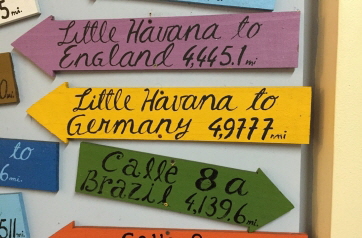 5 mi.
Little Havana to
England 4,445.1 mi
0
Little Havana to
Germany 4,977.7 mi
to
6 mi.
Calle 8 a
Brazil 4,139.6 mi
511 mi.